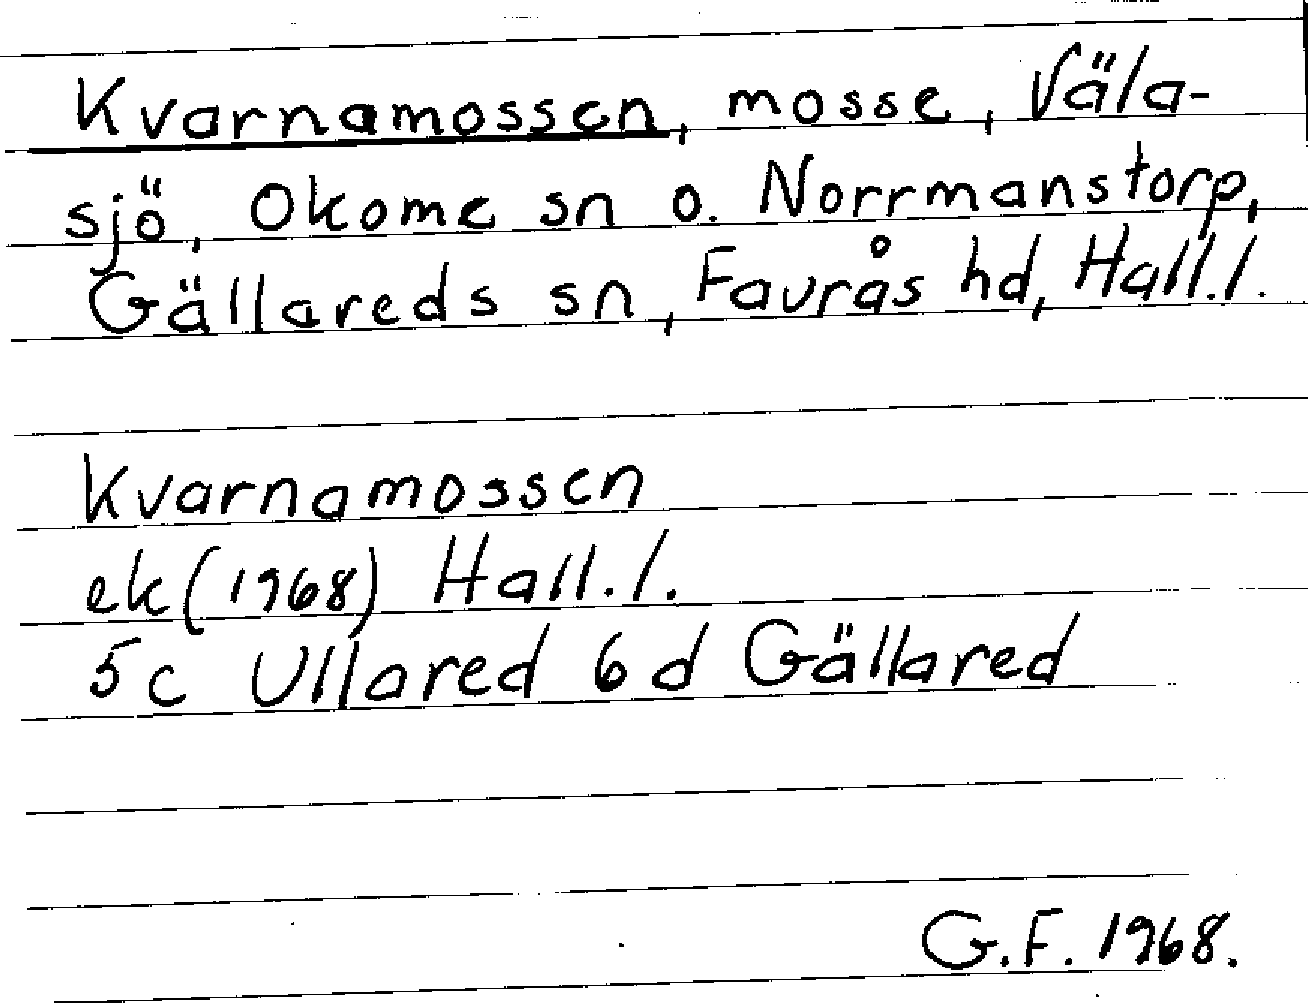 Kvarnamossen, mosse, Väla-
sjö, Okome sn o. Norrmanstorp,
Gällareds sn, Favrås hd, Hall.l.
Kvarnamossen
ek (1968) Hall.l.
5c Ullared 6d Gällared
G.F. 1968.